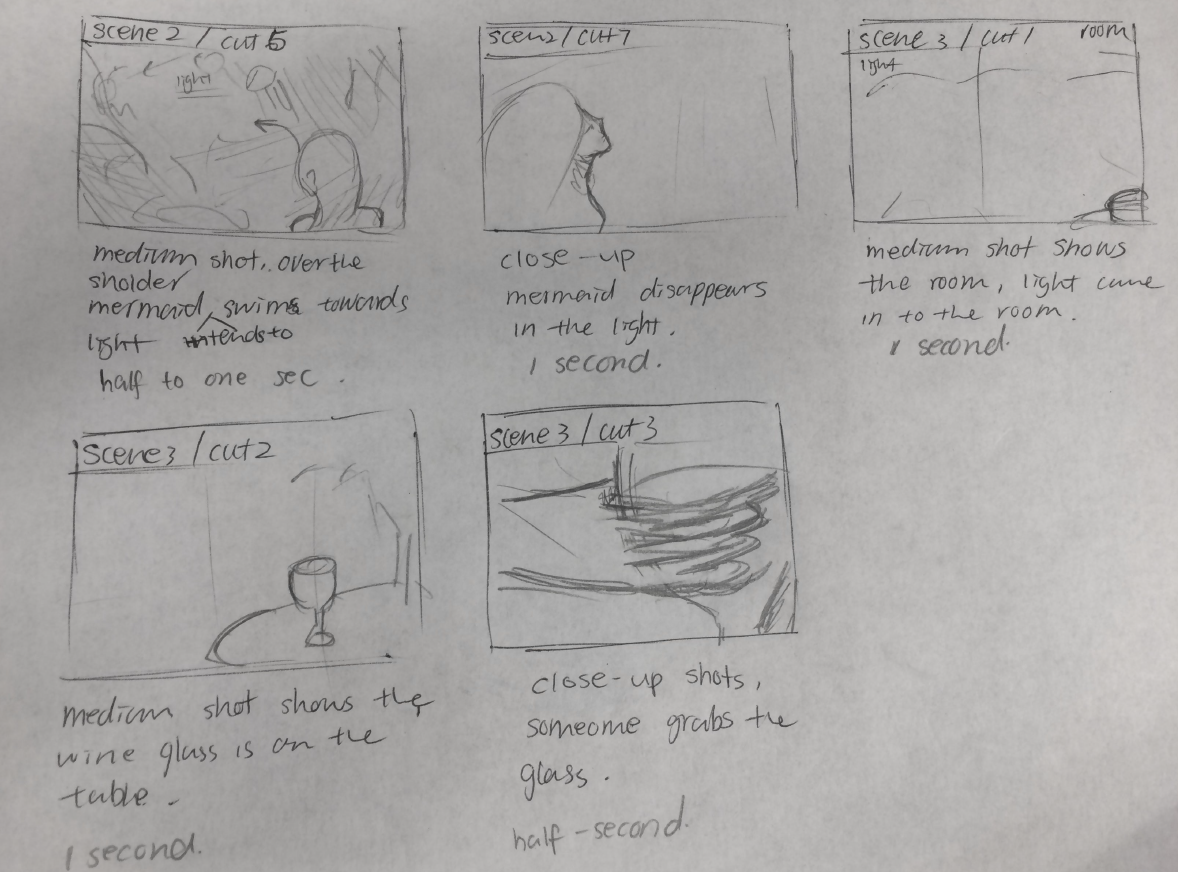 scene 2 / cut 5
light
medium shot, over the
sholder
mermaid swims towards
light intends to
half to one sec .
scen2 / cut 7
close-up
mermaid disappears
in the light.
1 second.
scene 3 / cut 1 room
light
medium shot shows
the room, light came
in to the room.
1 second.
scene3 / cut2
medium shot shows the
wine glass is on the
table.
1 second.
scene 3 / cut 3
close-up shots,
someome grabs the
glass.
half-second.